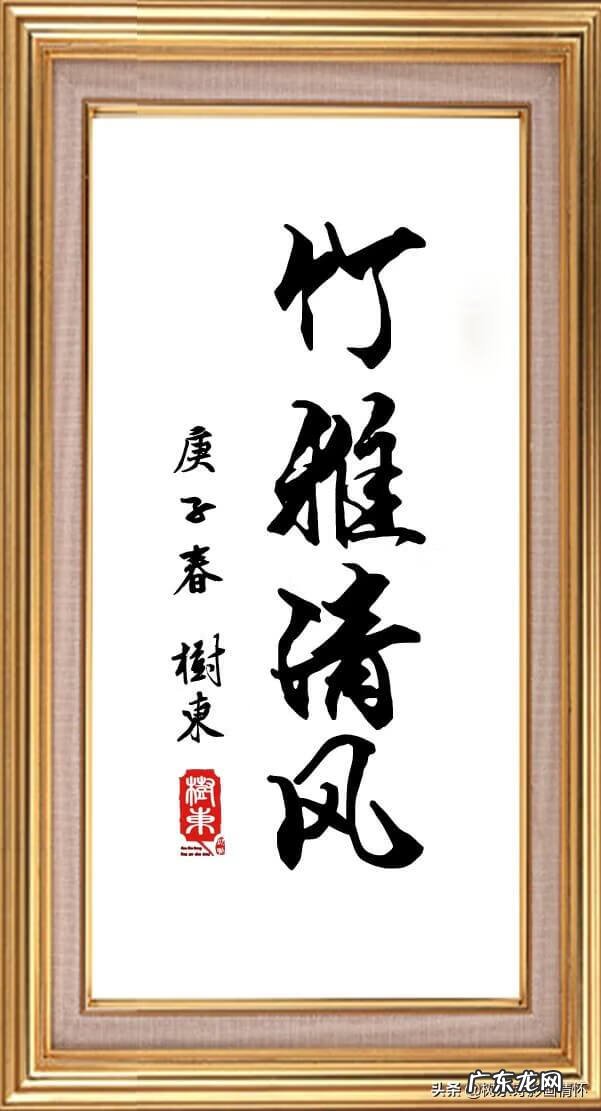 竹雅清风
庚子春 樹東
樹東
广东龙网
头条